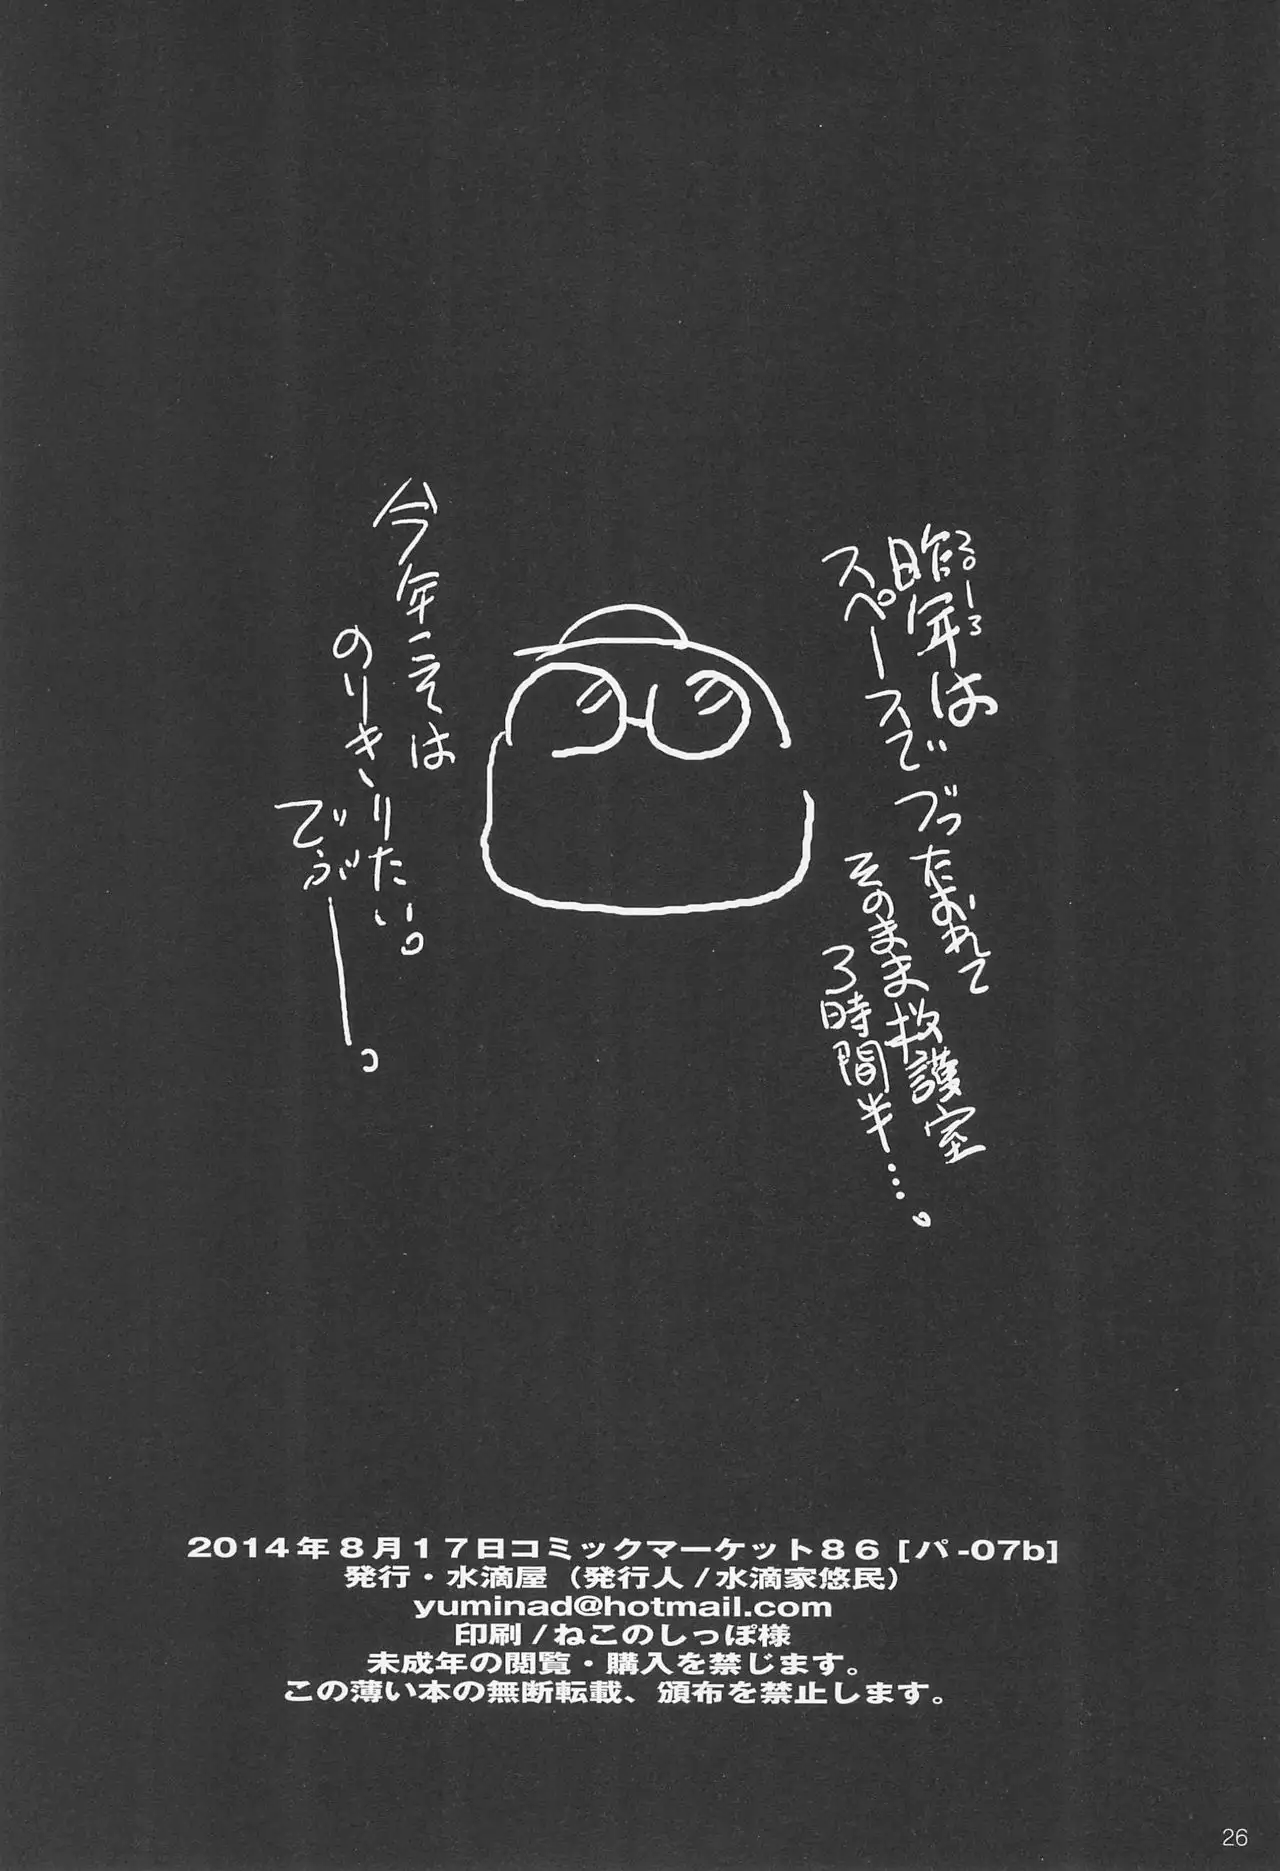 昨年は
スペースで
ブったおれて
そのまま救護室
3時間半…。
今年こそは
のりきりたい。
でぃぶー。
2014年8月17日コミックマーケット86 [パ-07b]
発行・水滴屋（発行人/水滴家悠民）
yuminad@hotmail.com
印刷/ねこのしっぽ様
未成年の閲覧・購入を禁じます。
この薄い本の無断転載、頒布を禁止します。
26